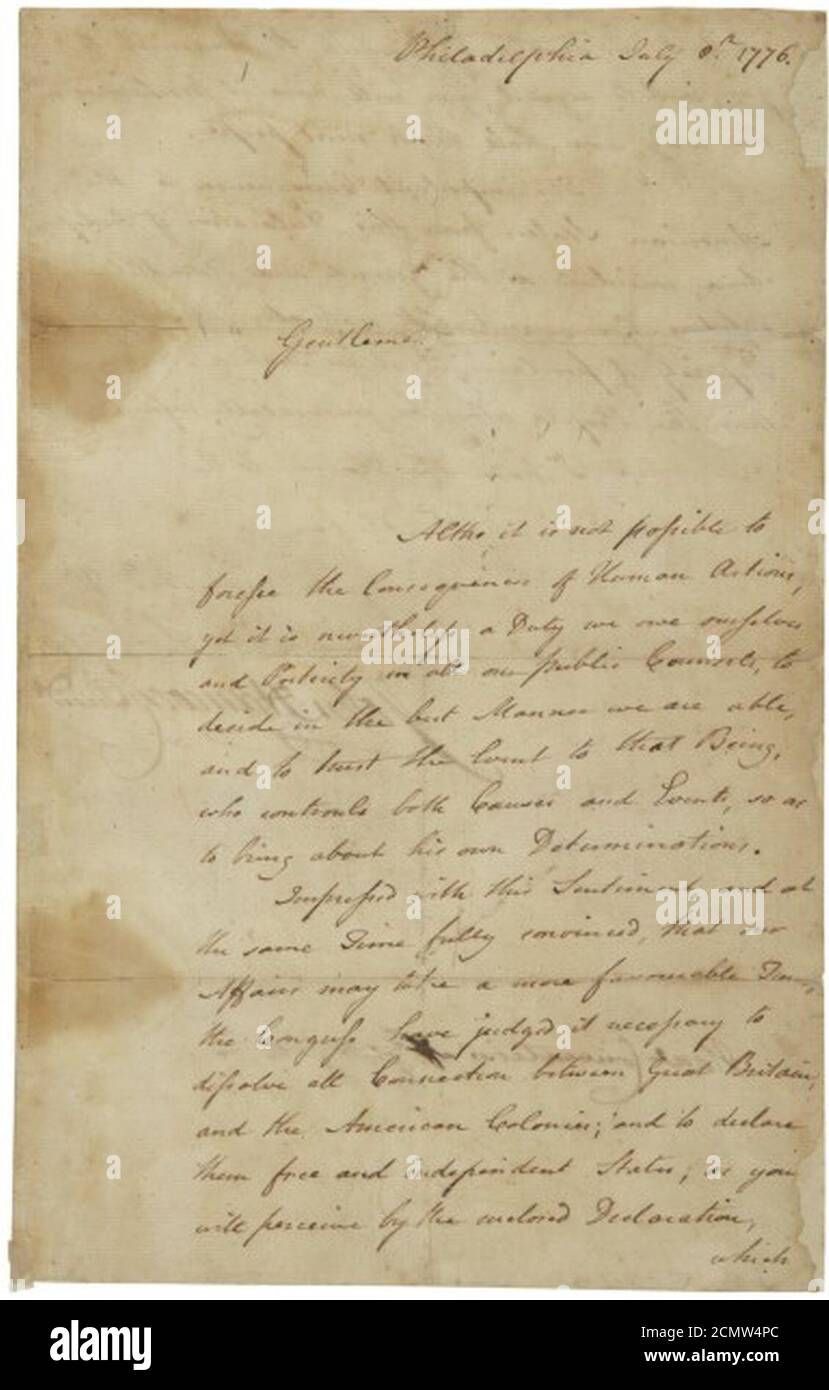 Philadelphia July 8th. 1776.
Gentlemen
Altho it is not possible to
foresee the Consequences of Human Actions,
yet it is nevertheless a Duty we owe ourselves
and Posterity in all our public Counsels, to
decide in the best Manner we are able,
and to trust the Event to that Being,
who controuls both Causes and Events, so as
to bring about his own Determinations.
Impressed with this Sentiment, and at
the same Time fully convinced, that our
Affairs may take a more favourable Turn,
the Congress have judged it necessary to
dissolve all Connection between Great Britain,
and the American Colonies; and to declare
them free and independent States; as you
will perceive by the enclosed Declaration,
which
alamy
alamy
alamy
alamy
Image ID: 2CMW4PC
www.alamy.com